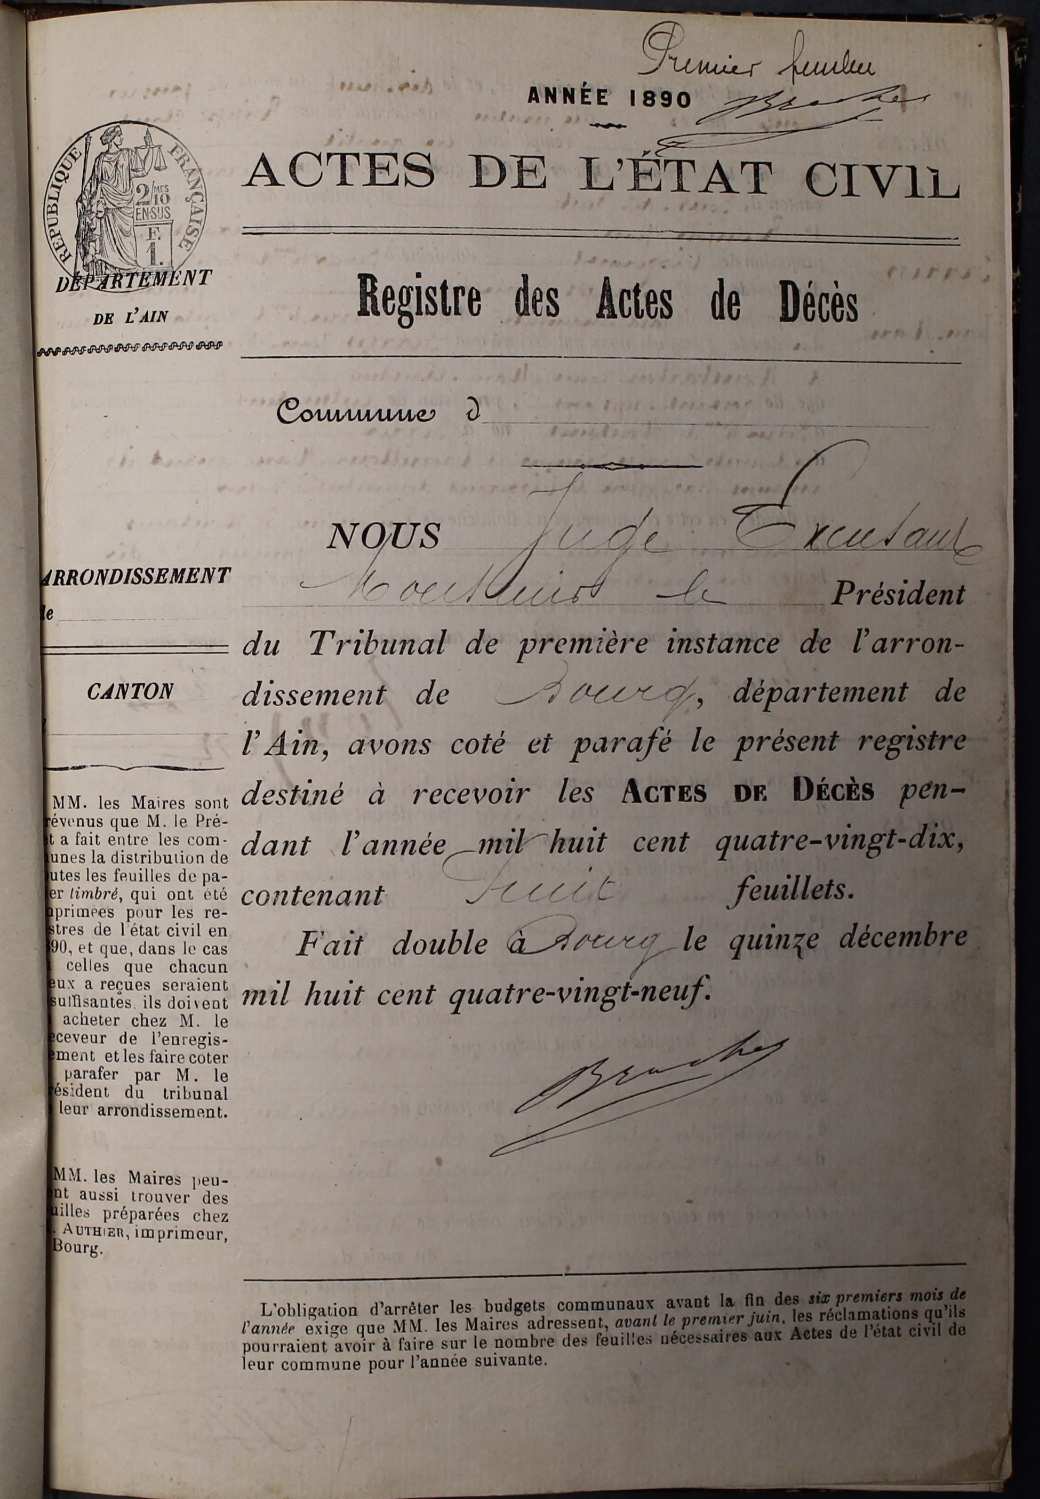 Premier feuillet
ANNÉE 1890
ACTES DE L'ÉTAT CIVIL
RÉPUBLIQUE FRANÇAISE
2/10 EN SUS
F.
1.
DÉPARTEMENT
DE L'AIN
Registre des Actes de Décès
Commune d
NOUS Juge
ARRONDISSEMENT
Monsieur le Président
du Tribunal de première instance de l'arron-
CANTON
dissement de Bourg, département de
l'Ain, avons coté et parafé le présent registre
destiné à recevoir les ACTES DE DÉCÈS pen-
dant l'année mil huit cent quatre-vingt-dix,
contenant huit feuillets.
Fait double à Bourg le quinze décembre
mil huit cent quatre-vingt-neuf.
MM. les Maires sont
révenus que M. le Pré-
t a fait entre les com-
unes la distribution de
utes les feuilles de pa-
er timbré, qui ont été
primées pour les re-
stres de l'état civil en
90, et que, dans le cas
celles que chacun
eux a reçues seraient
suffisantes, ils doivent
acheter chez M. le
ceveur de l'enregis-
ment et les faire coter
parafer par M. le
ésident du tribunal
leur arrondissement.
MM. les Maires peu-
nt aussi trouver des
uilles préparées chez
. AUTHIER, imprimeur,
Bourg.
L'obligation d'arrêter les budgets communaux avant la fin des six premiers mois de
l'année exige que MM. les Maires adressent, avant le premier juin, les réclamations qu'ils
pourraient avoir à faire sur le nombre des feuilles nécessaires aux Actes de l'état civil de
leur commune pour l'année suivante.